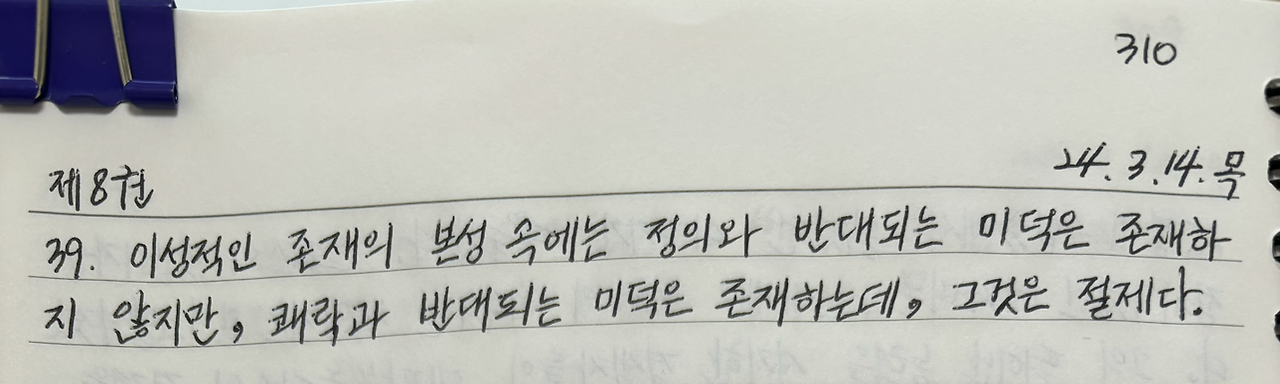 310
24.3.14.목
제8권
39. 이성적인 존재의 본성 속에는 정의와 반대되는 미덕은 존재하
지 않지만, 쾌락과 반대되는 미덕은 존재하는데, 그것은 절제다.